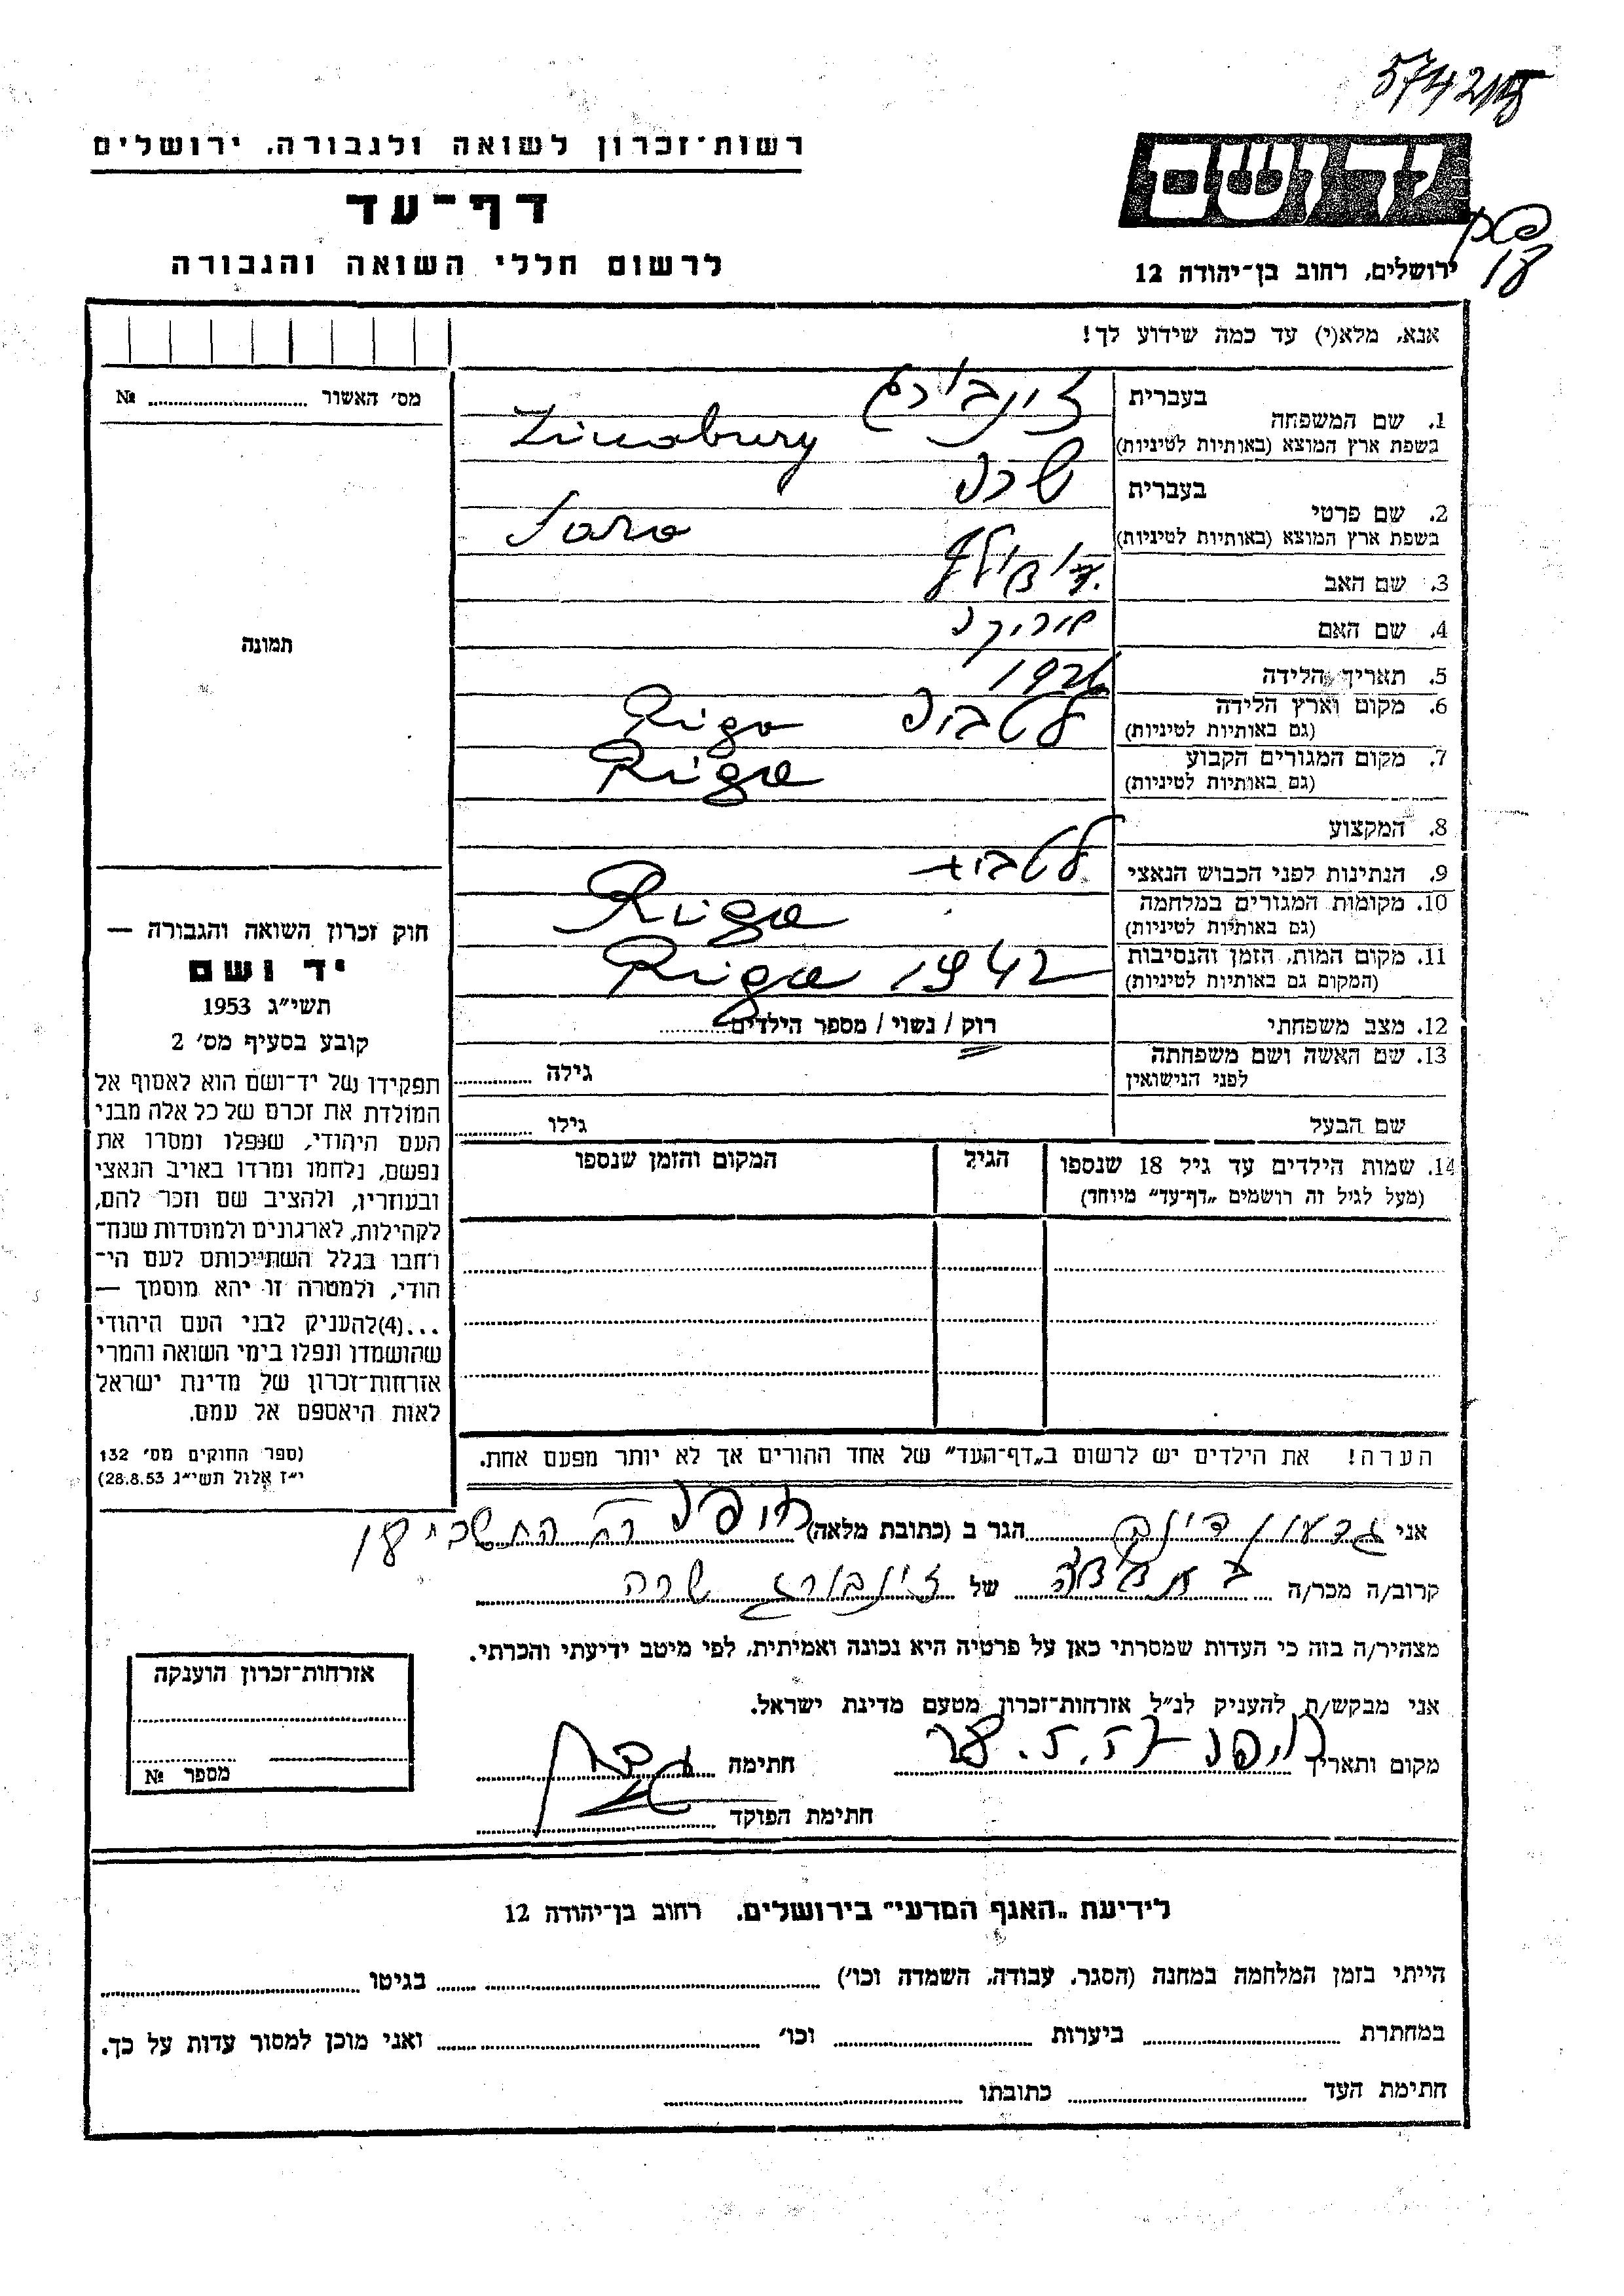 רשות-זכרון לשואה ולגבורה, ירושלים
דף-עד
לרשום חללי השואה והגבורה
יד ושם
ירושלים, רחוב בן-יהודה 12
אנא, מלא(י) עד כמה שידוע לך!
מס׳ האשור № ........
1. שם המשפחה
בעברית זינבורג
בשפת ארץ המוצא (באותיות לטיניות)
2. שם פרטי
בעברית שרה
בשפת ארץ המוצא (באותיות לטיניות) Sara
3. שם האב
4. שם האם
5. תאריך הלידה
6. מקום וארץ הלידה לטביה Riga
(גם באותיות לטיניות)
7. מקום המגורים הקבוע Riga
(גם באותיות לטיניות)
8. המקצוע
9. הנתינות לפני הכבוש הנאצי לטבית
10. מקומות המגורים במלחמה Riga
(גם באותיות לטיניות)
11. מקום המות, הזמן והנסיבות Riga 1942
(המקום גם באותיות לטיניות)
12. מצב משפחתי רוק / נשוי / מספר הילדים........
13. שם האשה ושם משפחתה
לפני הנישואין גילה ........
שם הבעל גילו ........
14. שמות הילדים עד גיל 18 שנספו הגיל המקום והזמן שנספו
(מעל לגיל זה רושמים „דף-עד״ מיוחד)
הערה! את הילדים יש לרשום ב„דף-העד״ של אחד ההורים אך לא יותר מפעם אחת.
תמונה
חוק זכרון השואה והגבורה —
יד ושם
תשי״ג 1953
קובע בסעיף מס׳ 2
תפקידו של יד-ושם הוא לאסוף אל
המולדת את זכרם של כל אלה מבני
העם היהודי, שנפלו ומסרו את
נפשם, נלחמו ומרדו באויב הנאצי
ובעוזריו, ולהציב שם וזכר להם,
לקהילות, לארגונים ולמוסדות שנח-
רחבו בגלל השתייכותם לעם הי-
הודי, ולמטרה זו יהא מוסמך —
...(4)להעניק לבני העם היהודי
שהושמדו ונפלו בימי השואה והמרי
אזרחות-זכרון של מדינת ישראל
לאות היאספם אל עמם.
(ספר החוקים מס׳ 132
י״ז אלול תשי״ג 28.8.53)
אני גדעון הגר ב (כתובת מלאה) חיפה
קרוב/ה מכר/ה של זינבורג שרה
מצהיר/ה בזה כי העדות שמסרתי כאן על פרטיה היא נכונה ואמיתית, לפי מיטב ידיעתי והכרתי.
אני מבקש/ת להעניק לנ״ל אזרחות-זכרון מטעם מדינת ישראל.
מקום ותאריך חיפה חתימה
חתימת הפוקד ........
אזרחות-זכרון הוענקה
מספר №
לידיעת „האגף המדעי״ בירושלים, רחוב בן-יהודה 12
הייתי בזמן המלחמה במחנה (הסגר, עבודה, השמדה וכו׳) ........ בגיטו ........
במחתרת ........ ביערות ........ וכו׳ ........ ואני מוכן למסור עדות על כך.
חתימת העד ........ כתובתו ........